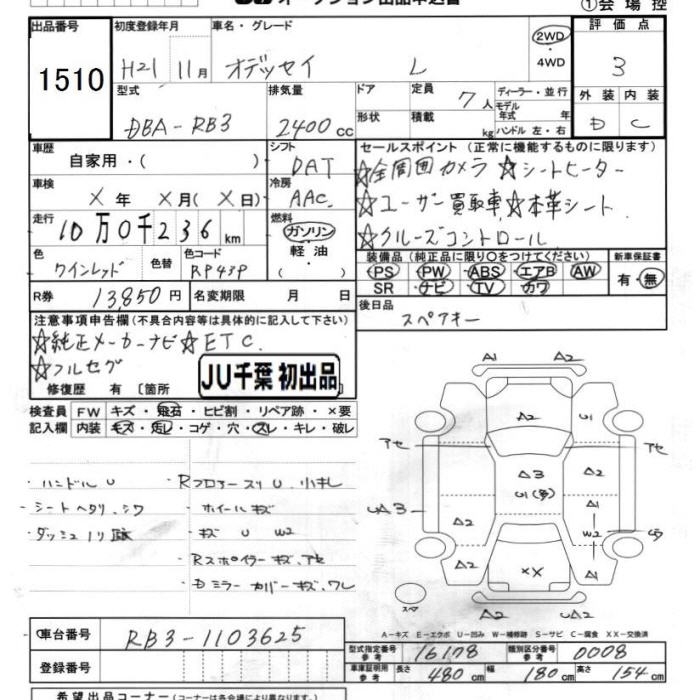 オークション出品申込書
①会場控
出品番号 初度登録年月 車名・グレード 2WD 評価点
1510 H21 11月 オデッセイ L 4WD 3
型式 排気量 ドア 定員 7人 ディーラー・並行 外装 内装
DBA-RB3 2400cc 形状 積載 kg モデル年式 年 D C
ハンドル 左・右
車歴 シフト セールスポイント(正常に機能するものに限ります)
自家用・( ) DAT ☆全周囲カメラ ☆シートヒーター
車検 冷房
×年 ×月(×日) AAC ☆ユーザー買取車 ☆本革シート
走行 燃料
10万0千236km ガソリン ☆クルーズコントロール
軽油・( )
色 色替 色コード 装備品(純正品に限り○をつけてください) 新車保証書
ワインレッド RP43P PS PW ABS エアB AW 有・無
SR ナビ TV カワ
R券 13,850円 名変期限 月 日 後日品
スペアキー
注意事項申告欄(不具合内容等は具体的に記入して下さい)
☆純正メーカーナビ ☆ETC.
☆フルセグ
JU千葉 初出品
修復歴 有 〔箇所
検査員 FW キズ・飛石・ヒビ割・リペア跡・×要
記入欄 内装 キズ・汚レ・コゲ・穴・スレ・キレ・破レ
A1 A2
A2 U1
アセ アセ
・ハンドルU ・Rフロアースリ U.小キレ
A3 A2
U1(多)
・シートヘタリ.シワ ・ホイールキズ
UA3 A1
・ダッシュノリ跡 ・キズ U W2
A2 W2
・Rスポイラーキズ.アセ
A2 XX A1
・Dミラーカバーキズ.ワレ
スペ A2 UA2
A-キズ E-エクボ U-凹み W-補修跡 S-サビ C-腐食 XX-交換済
車台番号 RB3-1103625
型式指定番号 参考 16178 類別区分番号 参考 0008
登録番号 車庫証明用 参考 長さ 480cm 幅 180cm 高さ 154cm
希望出品コーナー(コーナーは各会場により異なります。)